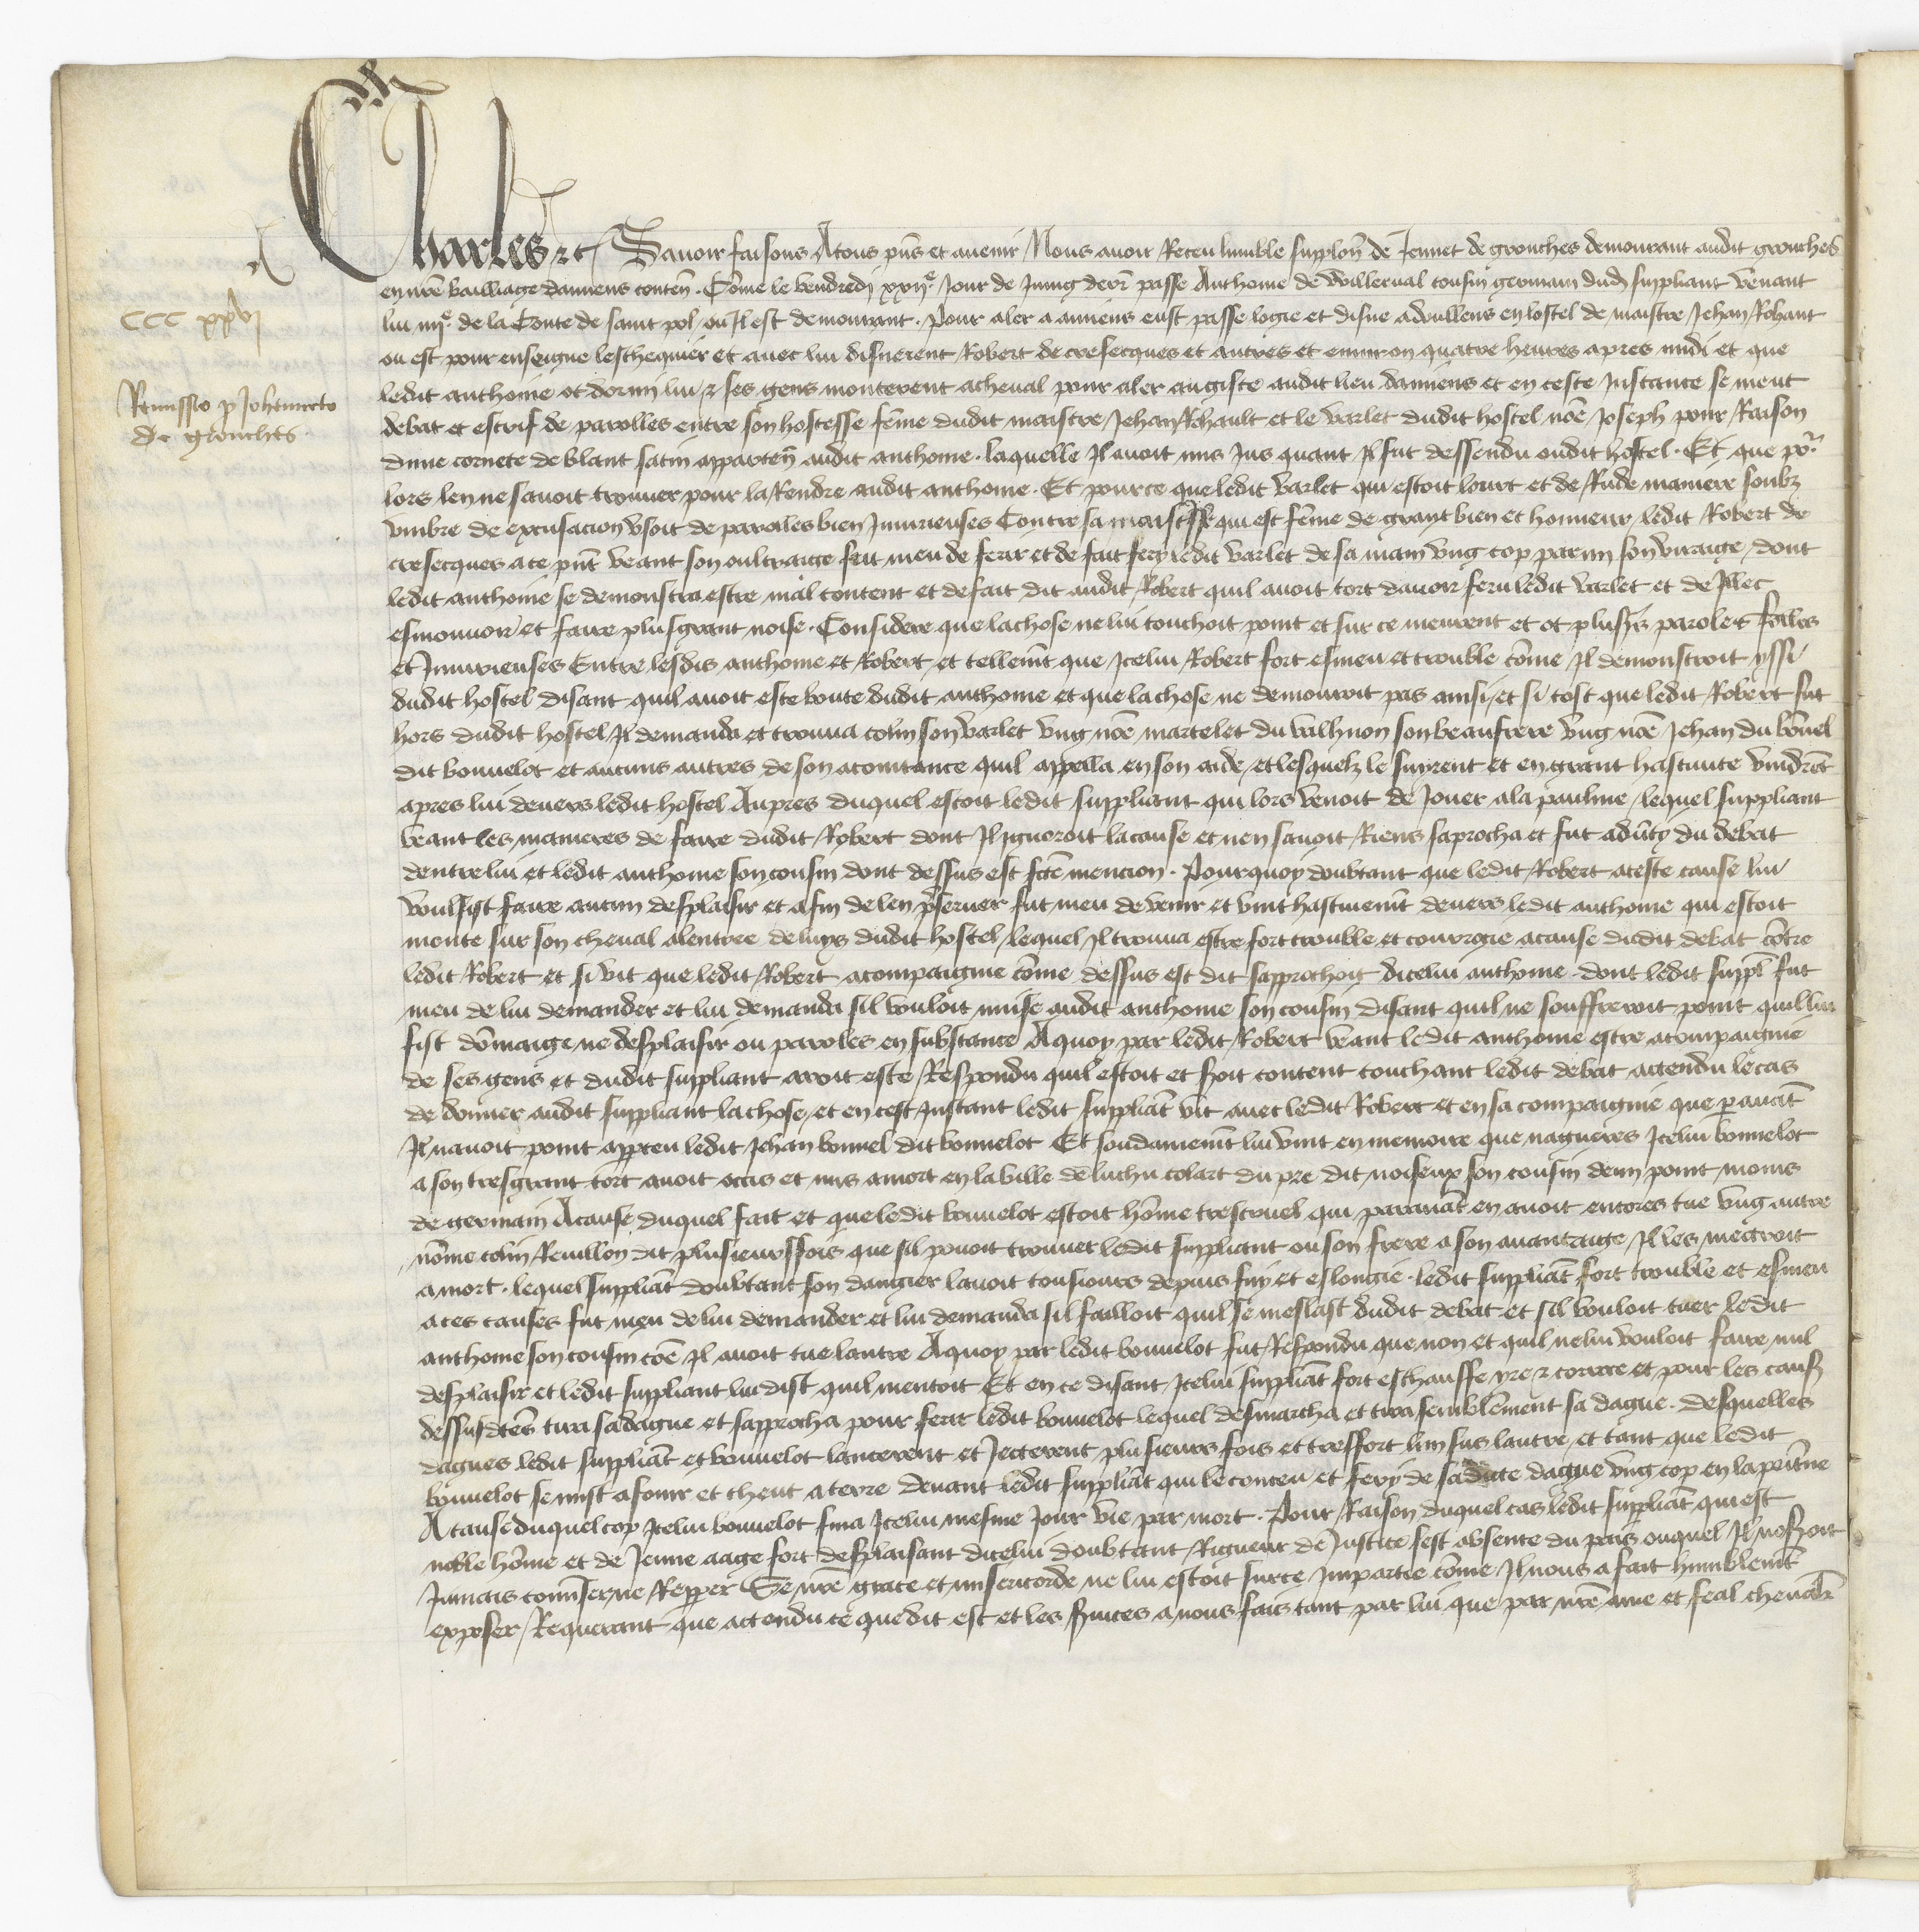 Charles etc Savoir faisons Atous pns et avenir Nous avoir Receu lumble supplon de Jennet de grouches demourant audit grouches
CCC xxvj
en nre bailliage damiens conten. Come le vendredi xxije Jour de Juing derr passe Anthoine de willerval cousin germain dud suppliant venant
lui iiije de la Conte de saint pol ou Il est demourant. Pour aler a amiens eust passe logie et disne a doullens en lostel de maistre Jehan Rohaut
ou est pour enseigne leschequier et avec lui disnerent Robert de cresecques et autres et environ quatre heures apres midi et que
Remissio p Johanneto
de grouches
ledit anthoine ot dormi lui et ses gens monterent a cheval pour aler au giste audit lieu damiens et en ceste Instance se meut
debat et estrif de parolles entre son hostesse feme dudit maistre Jehan Rohault et le varlet dudit hostel nome Joseph pour Raison
dune cornete de blanc satin apparten audit anthoine. laquelle Il avoit mis Jus quant Il fut dessendu oudit hostel. Et que pour
lors len ne savoit trouver pour la Rendre audit anthoine. Et pource que ledit varlet qui estoit lourt et de Rude maniere soubz
umbre de excusacion usoit de parolles bien Injurieuses Contre sa maistresse qui est feme de grant bien et honneur ledit Robert de
cresecques a ce pnt veant son oultraige fut meu de ferir et de fait fery ledit varlet de sa main ung cop parmi son visaige dont
ledit anthoine se demonstra estre mal content et de fait dit audit Robert quil avoit tort davoir feru ledit varlet et de Illec
esmouvoir et faire plus grant noise. Considere que la chose ne lui touchoit point et sur ce meurent et ot plusrs paroles folles
et Injurieuses Entre lesdis anthoine et Robert et tellemt que Icelui Robert fort esmeu et trouble come Il demonstroit yssi
dudit hostel disant quil avoit este boute dudit anthoine et que la chose ne demourroit pas ainsi et si tost que ledit Robert fut
hors dudit hostel Il demanda et trouva colin son varlet ung nome martelet du valhuon son beaufrere ung nome Jehan du bonnel
dit bonnelot et aucuns autres de son acointance quil appella en son aide et lesquelz le suyrent et en grant hastivite vindrent
apres lui devers ledit hostel Aupres duquel estoit ledit suppliant qui lors venoit de Jouer a la paulme lequel suppliant
veant les manieres de faire dudit Robert dont Il ignoroit la cause et nen savoit Riens saprocha et fut adverty du debat
dentre lui et ledit anthoine son cousin dont dessus est fcte mencion. Pourquoy doubtant que ledit Robert a ceste cause lui
voulsist faire aucun desplaisir et afin de len pserver fut meu de venir et vint hastivemt devers ledit anthoine qui estoit
monte sur son cheval a lentree de luys dudit hostel lequel Il trouva estre fort trouble et courcie a cause dudit debat contre
ledit Robert et si vit que ledit Robert acompaigne come dessus est dit sapprochoit dicelui anthoine. dont ledit suppl fut
meu de lui demander et lui demanda sil vouloit nuire audit anthoine son cousin disant quil ne souffreroit point quil lui
fist domaige ne desplaisir ou paroles en substance Aquoy par ledit Robert veant ledit anthoine estre acompaigne
de ses gens et dudit suppliant avoit este Respondu quil estoit et soit content touchant ledit debat attendu le cas
de donner audit suppliant la chose et en cest Instant ledit suppliat vit avec ledit Robert et en sa compaignie que pavat
Il navoit point apperceu ledit Jehan bonnel dit bonnelot Et soudainemt lui vint en memoire que nagueres Icelui bonnelot
a son tresgrant tort avoit occis et mis a mort en la ville de luchu colart du pre dit noiseux son cousin demi point moins
de germain Acause duquel fait et que ledit bonnelot estoit home trescruel qui paravat en avoit encores tue ung autre
nome colin Revillon dit plusieurs fois que sil pouoit trouver ledit suppliant ou son frere a son avantaige Il les mettroit
a mort. lequel suppliat doubtant son dangier lavoit tousiours depuis fuy et eslongie. ledit suppliat fort trouble et esmeu
a ces causes fut meu de lui demander et lui demanda sil failloit quil se meslast dudit debat et sil vouloit tuer ledit
anthoine son cousin coe Il avoit tue lautre Aquoy par ledit bonnelot fut Respondu que non et quil ne lui vouloit faire nul
desplaisir et ledit suppliant lui dist quil mentoit Et en ce disant Icelui suppliat fort eschauffe yre et courre et pour les caus
dessusdtes tira sa dague et sapprocha pour ferir ledit bonnelot lequel desmarcha et tira semblement sa dague. desquelles
dagues ledit suppliat et bonnelot lancerent et Jecterent plusieurs fois et tresfort lun sus lautre et tant que ledit
bonnelot se mist a fouir et cheut a terre devant ledit suppliat qui le conceu et fery de sa dicte dague ung cop en la poitrine
A cause duquel cop Icelui bonnelot fina Icelui mesme Jour vie par mort. Pour Raison duquel cas ledit suppliat qui est
noble home et de Jeune aage fort desplaisant dicelui doubtant Rigueur de Justice sest absente du pais ouquel Il noseroit
Jamais converser ne Repper Se nre grace et misericorde ne lui estoit sur ce Impartie come Il nous a fait humblemt
exposer Requerant que attendu ce que dit est et les svices a nous fais tant par lui que par nre ame et feal chevalr